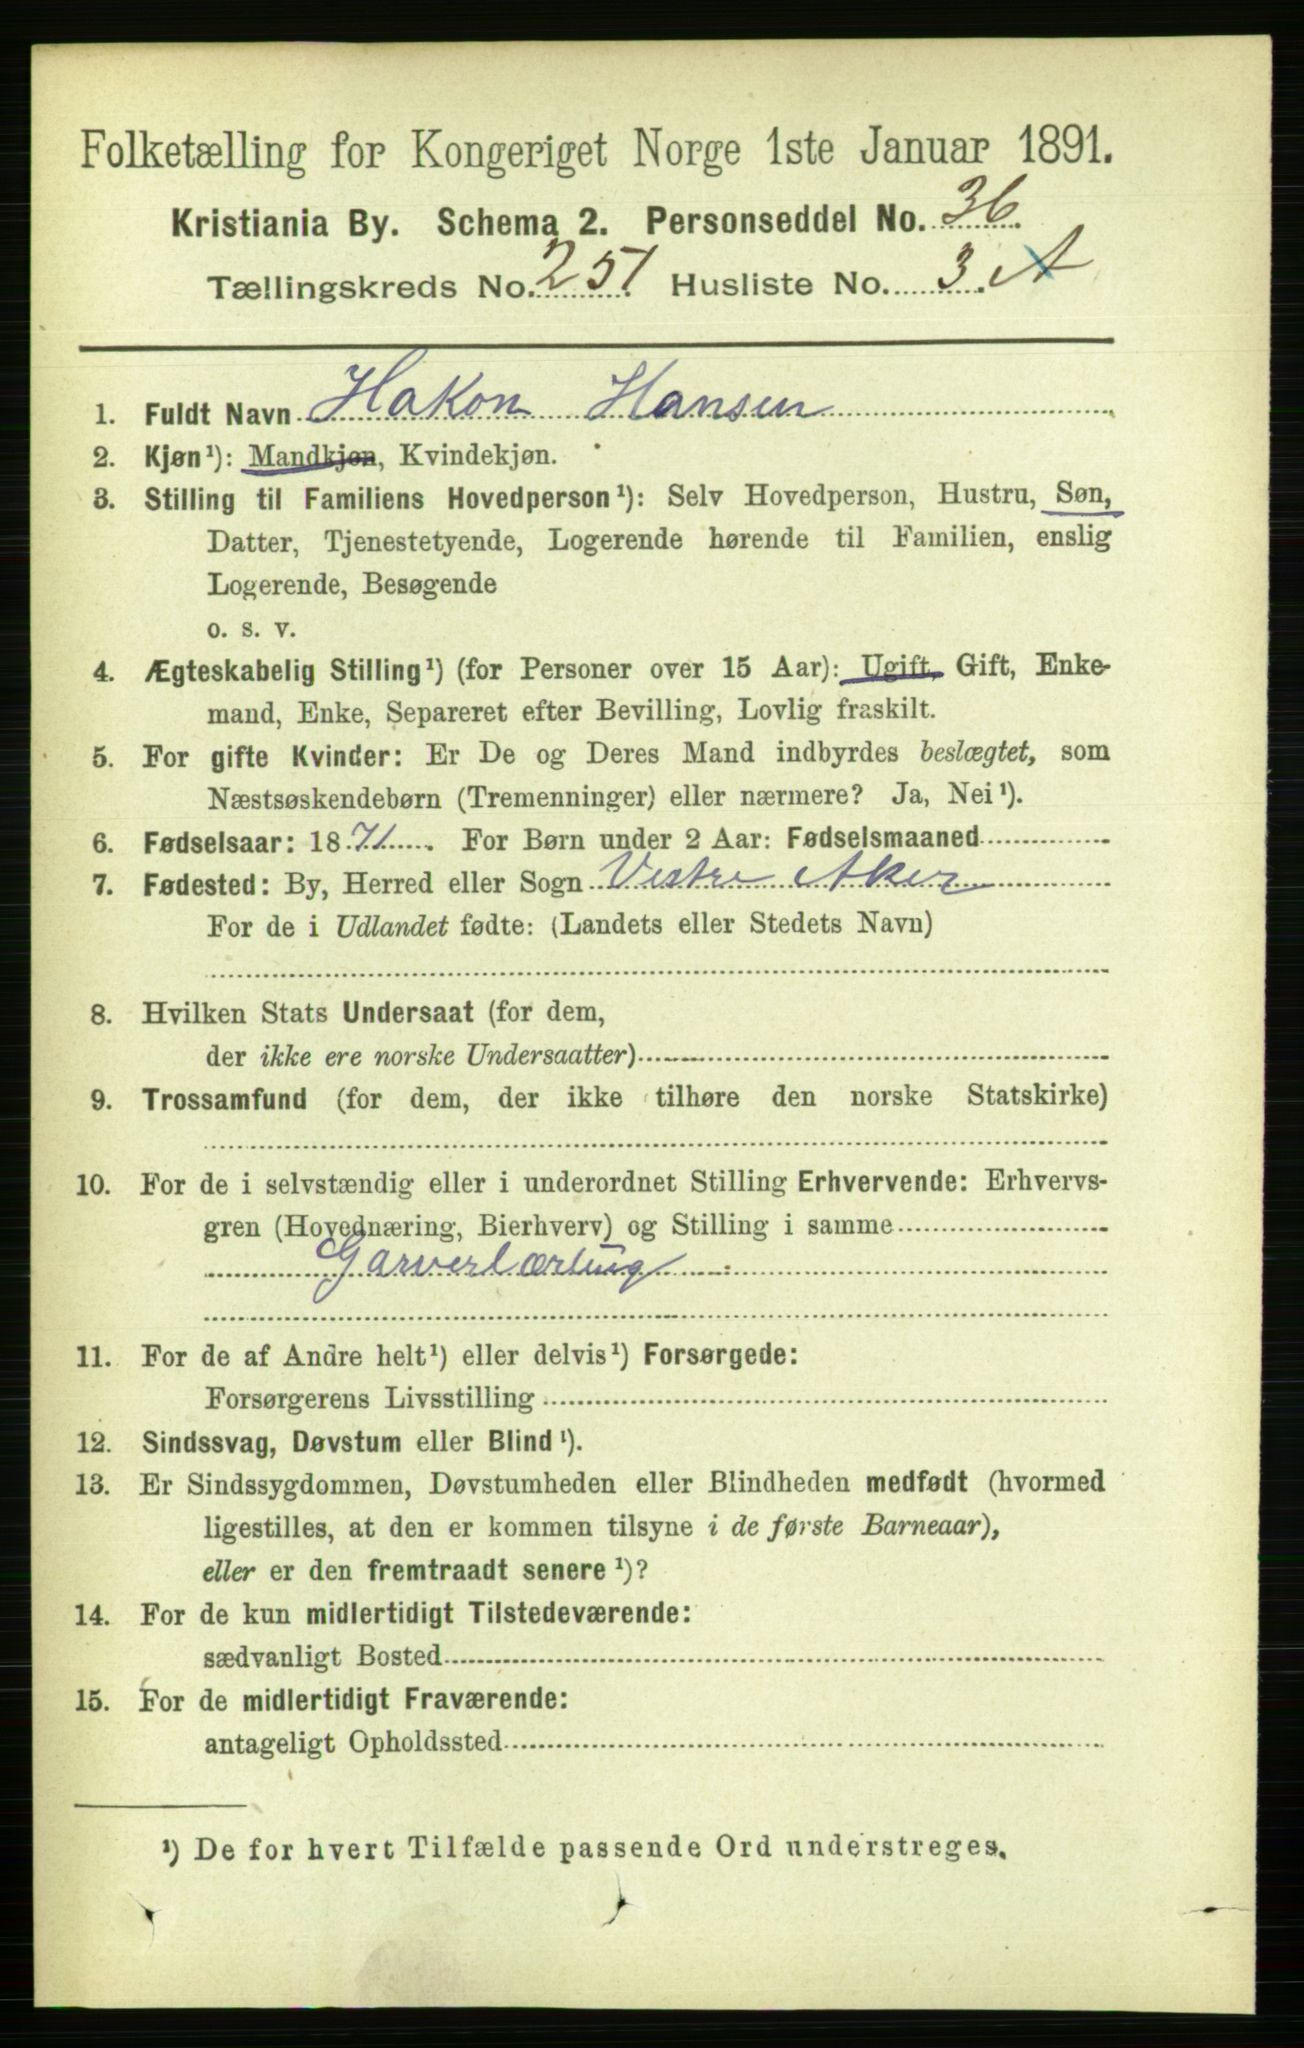 Folketælling for Kongeriget Norge 1ste Januar 1891.
Kristiania By. Schema 2. Personseddel No. 36.
Tællingskreds No. 251 Husliste No. 3. A
1. Fuldt Navn Hakon Hansen
2. Kjøn¹): Mandkjøn, Kvindekjøn.
3. Stilling til Familiens Hovedperson¹): Selv Hovedperson, Hustru, Søn,
Datter, Tjenestetyende, Logerende hørende til Familien, enslig
Logerende, Besøgende
o. s. v.
4. Ægteskabelig Stilling¹) (for Personer over 15 Aar): Ugift, Gift, Enke-
mand, Enke, Separeret efter Bevilling, Lovlig fraskilt.
5. For gifte Kvinder: Er De og Deres Mand indbyrdes beslægtet, som
Næstsøskendebørn (Tremenninger) eller nærmere? Ja, Nei¹).
6. Fødselsaar: 1871. For Børn under 2 Aar: Fødselsmaaned
7. Fødested: By, Herred eller Sogn Vestre Aker
For de i Udlandet fødte: (Landets eller Stedets Navn)
8. Hvilken Stats Undersaat (for dem,
der ikke ere norske Undersaatter)
9. Trossamfund (for dem, der ikke tilhøre den norske Statskirke)
10. For de i selvstændig eller i underordnet Stilling Erhvervende: Erhvervs-
gren (Hovednæring, Bierhverv) og Stilling i samme
Garverlærling
11. For de af Andre helt¹) eller delvis¹) Forsørgede:
Forsørgerens Livsstilling
12. Sindssvag, Døvstum eller Blind¹).
13. Er Sindssygdommen, Døvstumheden eller Blindheden medfødt (hvormed
ligestilles, at den er kommen tilsyne i de første Barneaar),
eller er den fremtraadt senere¹)?
14. For de kun midlertidigt Tilstedeværende:
sædvanligt Bosted
15. For de midlertidigt Fraværende:
antageligt Opholdssted
¹) De for hvert Tilfælde passende Ord understreges.